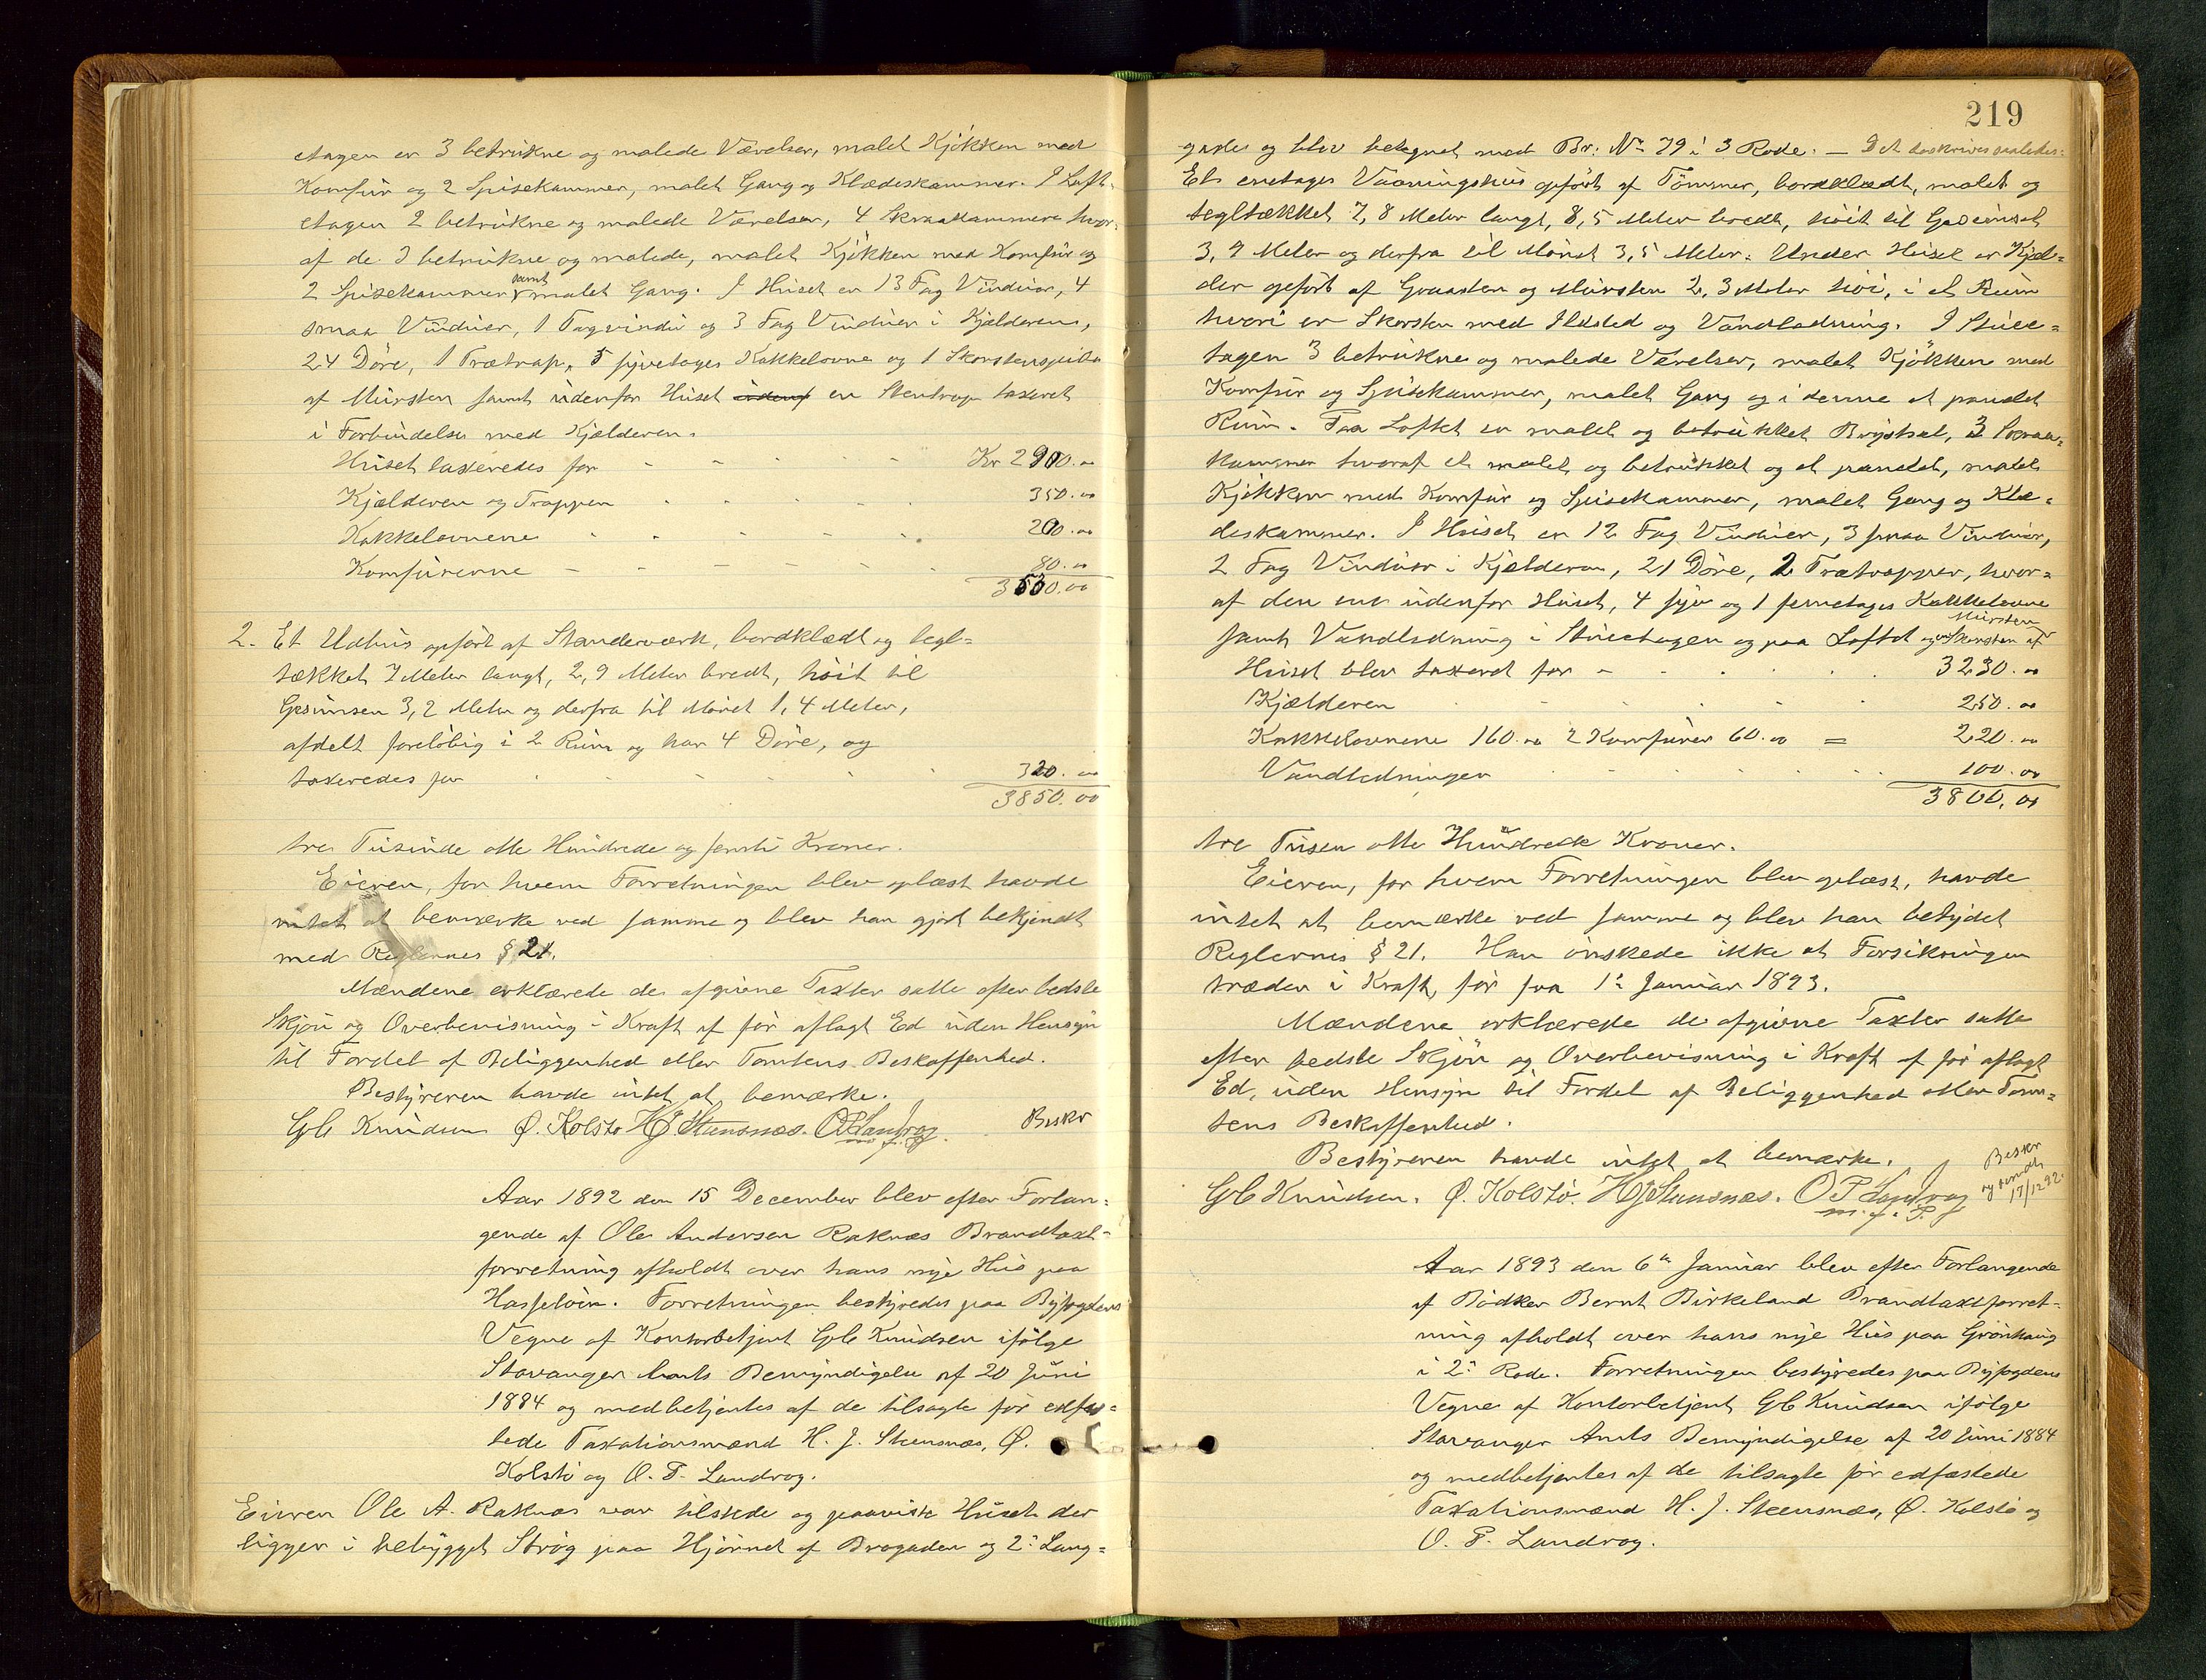 etagen er 3 betrukne og malede Værelser, malet Kjøkken med
Komfur og 2 Spisekammer, malet Gang og Klædeskammer. I Loft-
etagen 2 betrukne og malede Værelser, 4 Skraakammere hvor-
af de 3 betrukne og malede, malet Kjøkken med Komfur og
2 Spisekammer samt malet Gang. I Huset er 13 Fag Vinduer, 4
smaa Vinduer, 1 Tagvindu og 3 Fag Vinduer i Kjælderen,
24 Døre, 1 Trætrap, 5 fyretages Kakkelovne og 1 Skorstenspibe
af Mursten samt udenfor Huset en Stentrap taxeret
i Forbindelse med Kjælderen.
Huset taxeredes for - - - - Kr 2900.00
Kjælderen og Trappen - - - 350.00
Kakkelovnene - - - - 200.00
Komfurerne - - - - 80.00
3530.00
2. Et Udhus opført af Standerværk, bordklædt og tegl-
tækket 7 Meter langt, 2,9 Meter bredt, høit til
Gesimsen 3,2 Meter og derfra til Mønet 1,4 Meter,
afdelt foreløbig i 2 Rum og har 4 Døre, og
taxeredes for - - - - 320.00
3850.00
tre Tusinde otte Hundrede og femti Kroner.
Eieren, for hvem Forretningen blev oplæst havde
intet at bemærke ved samme og blev han gjort bekjendt
med Reglernes § 21.
Mændene erklærede de afgivne Taxter satte efter bedste
Skjøn og Overbevisning i Kraft af før aflagt Ed uden Hensyn
til Fordel af Beliggenhed eller Tomtens Beskaffenhed.
Bestyreren havde intet at bemærke.
Gb Knudsen Ø. Kolstø HJ Steensnæs. OPLandrog Beskr
m. f. P.
Aar 1892 den 15 December blev efter Forlan-
gende af Ole Andersen Raknæs Brandtaxt-
forretning afholdt over hans nye Hus paa
Hasseløen. Forretningen bestyredes paa Byfogdens
Vegne af Kontorbetjent Gb Knudsen ifølge
Stavanger Amts Bemyndigelse af 20 Juni
1884 og medbetjentes af de tilsagte før edfæs-
tede Taxationsmænd H. J. Steensnæs, Ø.
Kolstø og O. P. Landrog.
Eieren Ole A. Raknæs var tilstede og paaviste Huset der
ligger i bebygget Strøg paa Hjørnet af Brogaden og 2: Lang-
219
gades og blev betegnet med Br: No 79 i 3 Rode. — Det beskrives saaledes:
Et enetages Vaaningshus opført af Tømmer, bordklædt, malet og
tegltækket 7,8 Meter langt, 8,5 Meter bredt, høit til Gesimset
3,9 Meter og derfra til Mønet 3,5 Meter. Under Huset er Kjæl-
der opført af Graasten og Mursten 2,3 Meter høi, i et Rum
hvori er Skorsten med Ildsted og Vandledning. I Stuee-
tagen 3 betrukne og malede Værelser, malet Kjøkken med
Komfur og Spisekammer, malet Gang og i denne et panelet
Rum. Paa Loftet er malet og betrukket Brystsal, 3 Skraa-
kammer hvoraf et malet og betrukket og et panelet, malet
Kjøkken med Komfur og Spisekammer, malet Gang og Klæ-
deskammer. I Huset er 12 Fag Vinduer, 3 smaa Vinduer,
2 Fag Vinduer i Kjælderen, 21 Døre, 2 Trætrapper, hvor-
af den ene udenfor Huset, 4 fyr og 1 femetages Kakkelovne
samt Vandledning i Stueetagen og paa Loftet og en Skorsten af Mursten
Huset blev taxeret for - - - 3230.00
Kjælderen - - - 250.00
Kakkelovnene 160.00 2 Komfurer 60.00 = 220.00
Vandledningen - - - 100.00
3800.00
tre Tusen otte Hundrede Kroner.
Eieren, for hvem Forretningen blev oplæst, havde
intet at bemærke ved samme og blev han betydet
Reglernes § 21. Han ønskede ikke at Forsikringen
træder i Kraft, før fra 1: Januar 1893.
Mændene erklærede de afgivne Taxter satte
efter bedste Skjøn og Overbevisning i Kraft af før aflagt
Ed, uden Hensyn til Fordel af Beliggenhed eller Tom-
tens Beskaffenhed.
Bestyreren havde intet at bemærke.
Gb Knudsen. Ø. Kolstø. HJSteensnæs. O P Landrog
m. f. P.
Beskr
og sendt
17/12 92.
Aar 1893 den 6te Januar blev efter Forlangende
af Bødker Bernt Birkeland Brandtaxtforret-
ning afholdt over hans nye Hus paa Grønhaug
i 2: Rode. Forretningen bestyredes paa Byfogdens
Vegne af Kontorbetjent Gb Knudsen ifølge
Stavanger Amts Bemyndigelse af 20 Juni 1884
og medbetjentes af de tilsagte før edfæstede
Taxationsmænd H. J. Steensnæs, Ø. Kolstø og
O. P. Landrog.